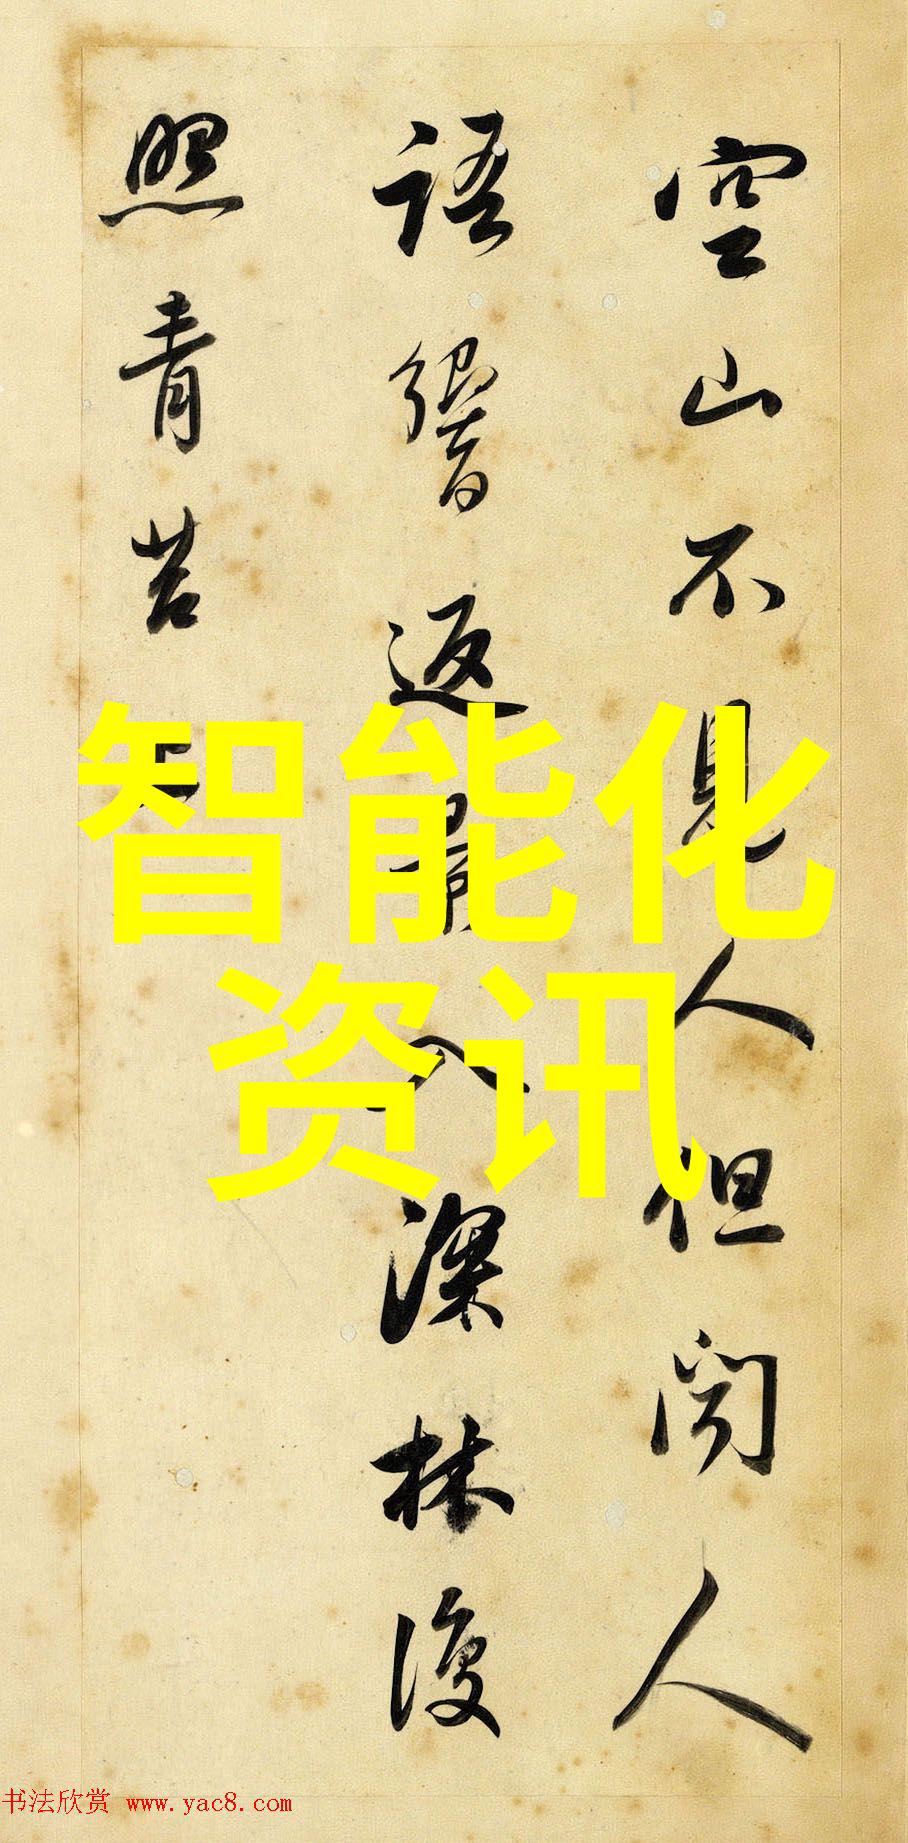 空山不見人但聞人
語響返景入深林復
照青苔上
智能化
资讯
书法欣赏 www.yac8.com